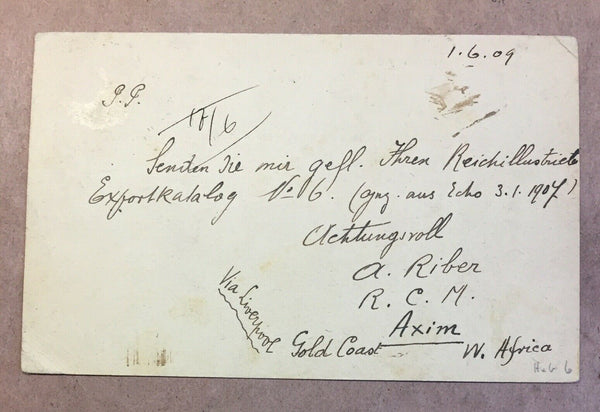 1.6.09
P.P.
18/6
Senden Sie mir gefl. Ihren Reichillustriete
Exportkatalog No 6. ( aus Echo 3.1.1907)
Achtungsvoll
A. Riber
R. C. M.
Axim
Via Liverpool Gold Coast W. Africa